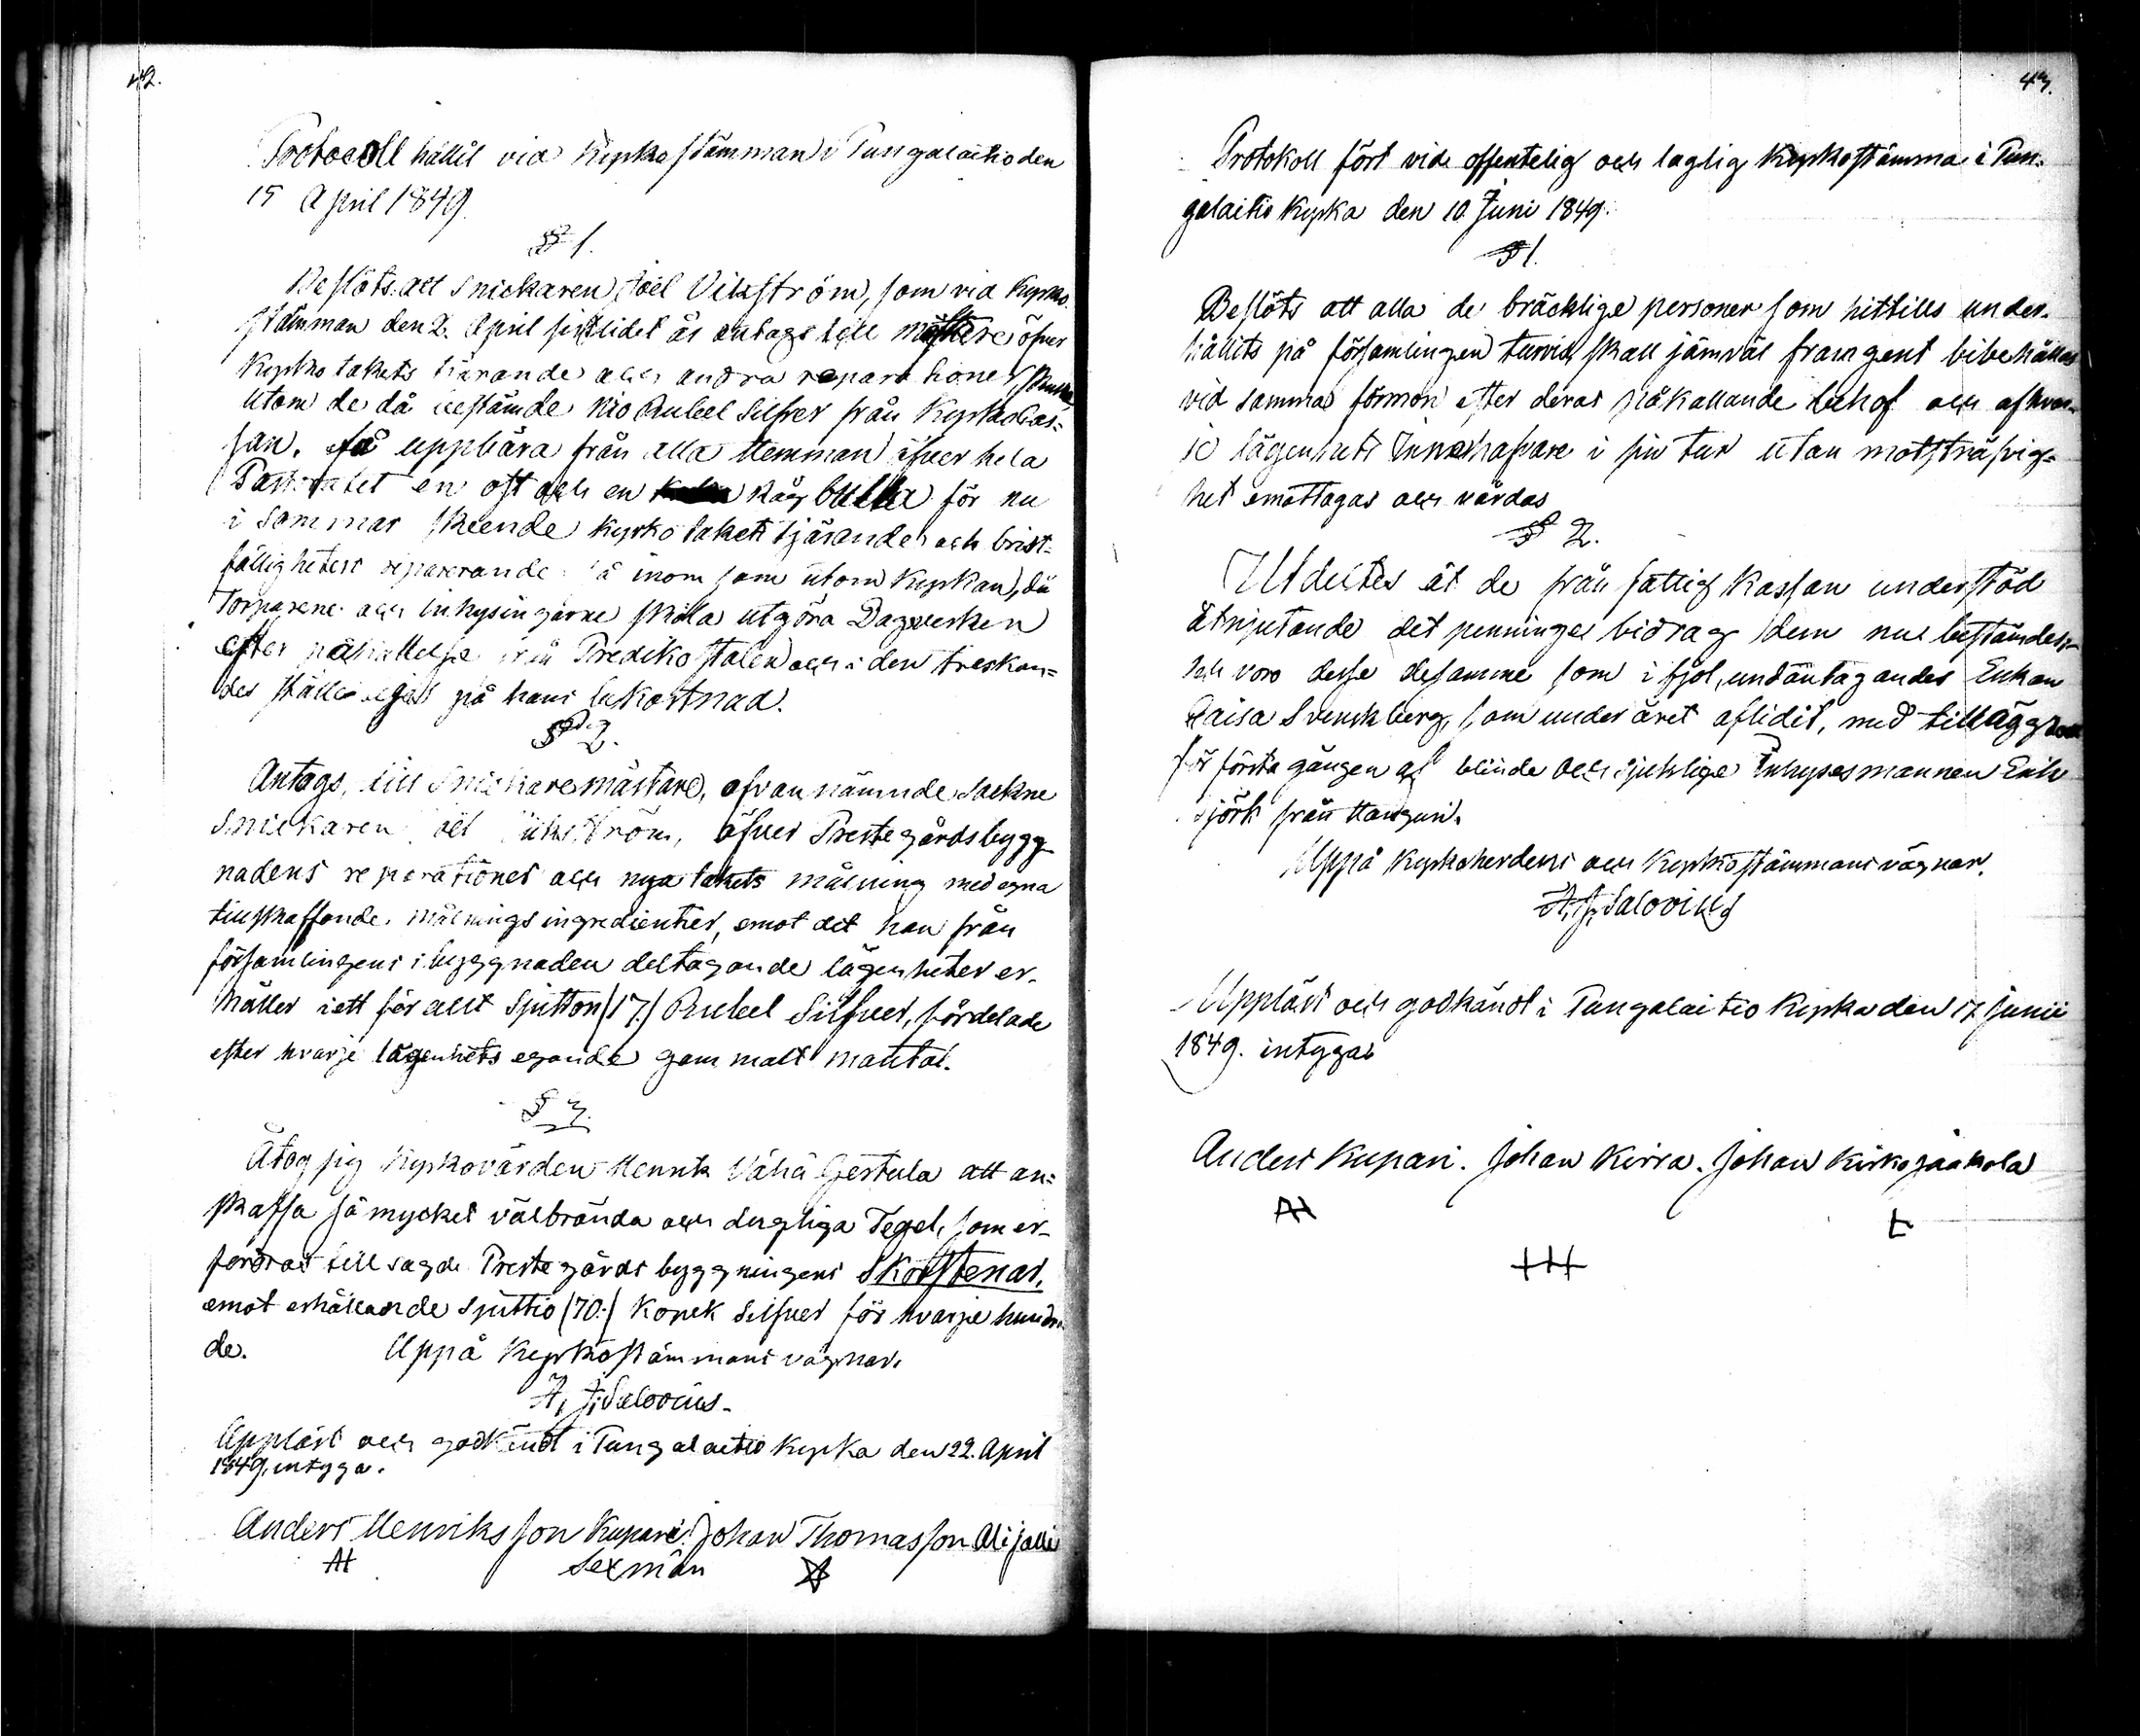 42.
Protocoll hållit vid Kyrkostämman i Pungalaitio den
15 April 1849.
§ 1.
Beslöts att snickaren Joel Vikström, som vid Kyrko
stämman den 2. April sistlidet år antags till mästare öfver
Kyrkotakets tjärande och andra reparationer,
utom de då bestämde tio Rubel Silfver från Kyrkocas-
san, få uppbära från alla Hemman öfver hela
Pastoratet en ost och en kåg för nu
i sommar skeende kyrkotakets tjärande och brist-
fälligheters reparerande så inom som utom Kyrkan, då
Torparene och Inhysingarne skola utgöra Dagsverken
efter påkallelse från Predikostolen och i den treskan-
des ställe legas på hans bekostnad.
§ 2.
Antogs, till Snickaremästare, ofvannämnde Sockne
Snickaren Joel Vikström, öfver Prestegårdsbygg
nadens reparationer och nya takets målning med egna
tillskaffande målningsingredientier, emot det han från
församlingens i byggnaden deltagande lägenheter er-
håller i ett för allt Sjutton (17.) Rubel Silfver, fördelade
efter hvarje lägenhets egande gammalt mantal.
§ 3.
Åtog sig Kyrkovärden Henrik Vähä Gestula att an-
skaffa så mycket välbrända och dugliga Tegel, som er-
fordras till sagde Prestegårds byggningens Skorstenar,
emot erhållande Sjuttio (70.) Kopek Silfver för hvarje hundra
de. Uppå Kyrkostämmans vägnar.
A. J. Salovius.
Uppläst och godkändt i Pungalaitio Kyrka den 22. April
1849, intyga.
Anders Henriksson Kupari. Johan Thomasson Alijalli
AH Sexmän
43.
Protokoll fört vid offentelig och laglig Kyrkostämma i Pun-
galaitio Kyrka den 10. Juni 1849.
§ 1.
Beslöts att alla de bräcklige personer som hittills under-
hållits på församlingen turvis, skall jämväl framgent bibehållas
vid samma förmon efter deras påkallande behof och af hvar-
je lägenhets Innehafvare i sin tur utan motsträfvig-
het emottagas och vårdas
§ 2.
Utdeltes åt de från fattig Kassan understöd
åtnjutande det penninge bidrag dem nu bestämdes,
och voro desse desamme som i fjol, undantagandes Enkan
Caisa Svenskberg, som under året aflidit, med tillägg
för första gången af blinde och sjuklige Inhysesmannen Erik
Björk från Hanguri.
Uppå Kyrkoherdens och Kyrkostämmans vägnar.
A. J. Salovius
Uppläst och godkändt i Pungalaitio Kyrka den 17 Junii
1849. intygas
Anders Kupari. Johan Kirra. Johan Kirkojaakola
AH